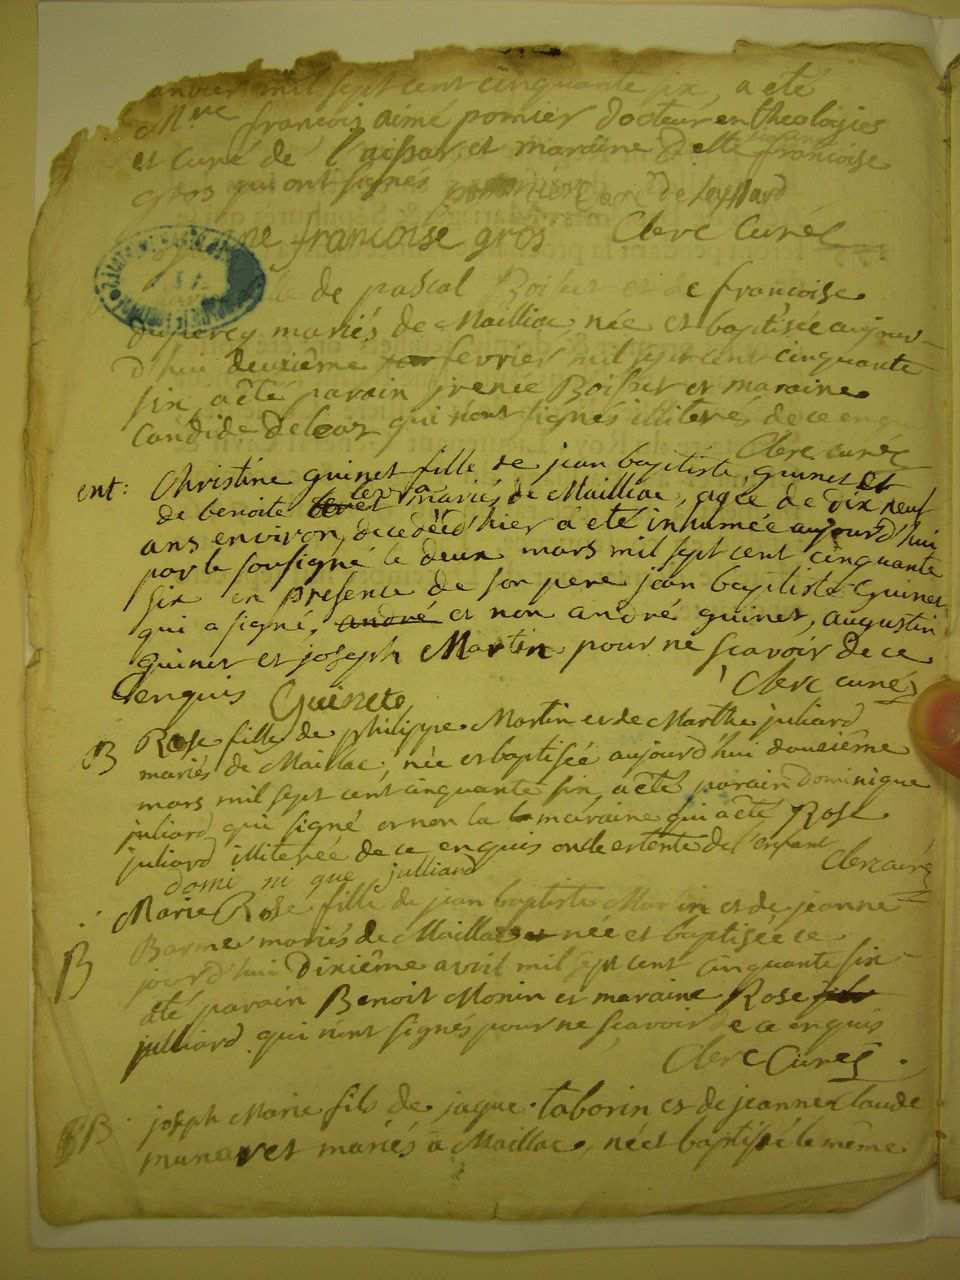 anvier mil sept cent cinquante six, a eté
Mre francois aimé pomier docteur en theologies
et curé de l'aissar, et maraine delle francoise
gros qui ont signés
francoise gros Clerc Curé
de pascal Boisset et de francoise
mariés de Mailliac, née et baptisée aujour-
d'hui deuxiême fevrier mil sept cent cinquante
six, a êté parain jrenée Boisset et maraine
Candide qui n'ont signés illiterés de ce enquis
Clerc curé
ent: Christine guinet fille de jean baptiste guinet et
de benoite mariés de Mailliac, agée de dix neuf
ans environ, decedée d'hier a eté inhumée aujourd'hui
par le sousigné le deux mars mil sept cent cinquante
six en presence de son pere jean baptiste Guinet
qui a signé, andré et non andré guinet, augustin
guinet et joseph Martin pour ne scavoir de ce
enquis Guinet Clerc curé
B Rose fille de philippe Martin et de Marthe juliard
mariés de Maillac, née et baptisée aujourd'hui douziême
mars mil sept cent cinquante six, a êté parain dominique
juliard, qui signé et non la maraine qui a êté Rose
juliard illiterée de ce enquis de l'enfant
domi ni que julliard Clerc curé
Marie Rose fille de jean baptiste Martin et de jeanne
B Barme mariés de Maillac née et baptisée ce
jourd'hui dixiême avril mil sept cent cinquante six
êté parain Benoit Monin et maraine Rose
julliard qui n'ont signés pour ne scavoir de ce enquis
Clerc Curé
B joseph Marie fils de jaque taborin et de jeanne claude
mariés à Maillac, né et baptisé le même